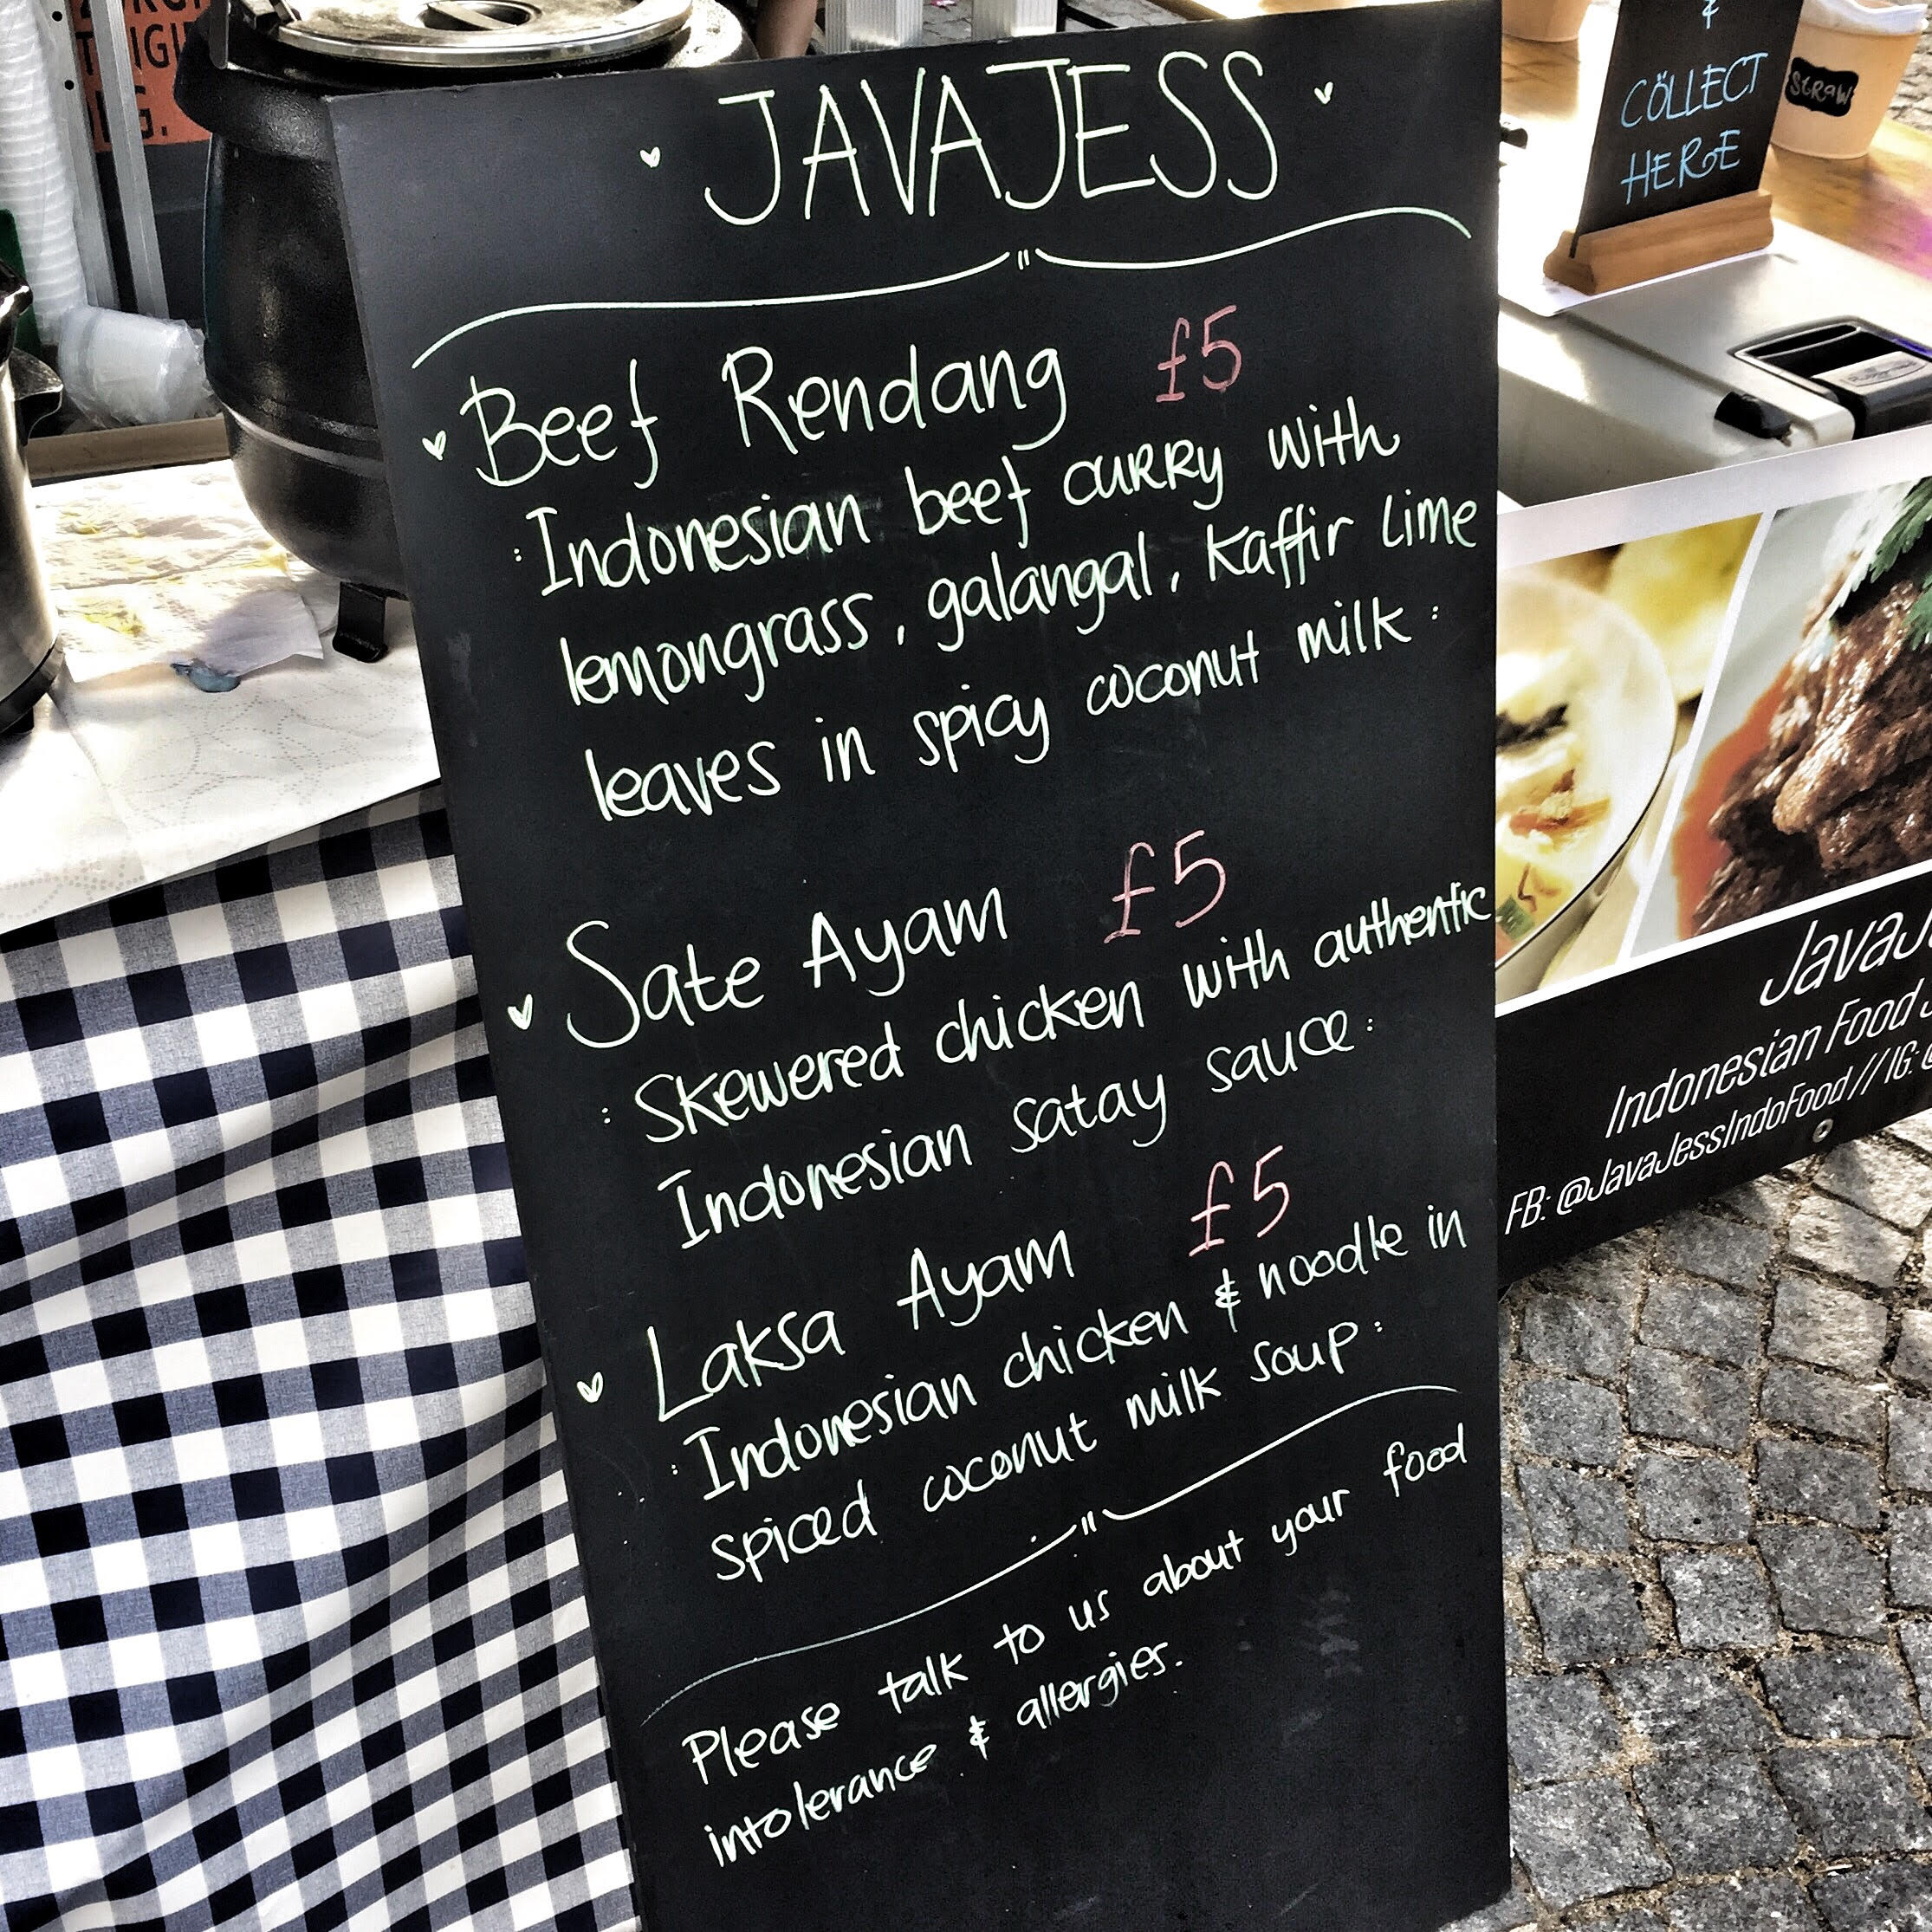 JAVAJESS
Beef Rendang £5
: Indonesian beef curry with
lemongrass, galangal, Kaffir Lime
leaves in spicy coconut milk :
Sate Ayam £5
: Skewered chicken with authentic
Indonesian satay sauce :
Laksa Ayam £5
: Indonesian chicken & noodle in
spiced coconut milk soup :
Please talk to us about your food
intolerance & allergies.
&
COLLECT
HERE
STRAW
Indonesian Food
FB: @JavaJessIndoFood // IG: